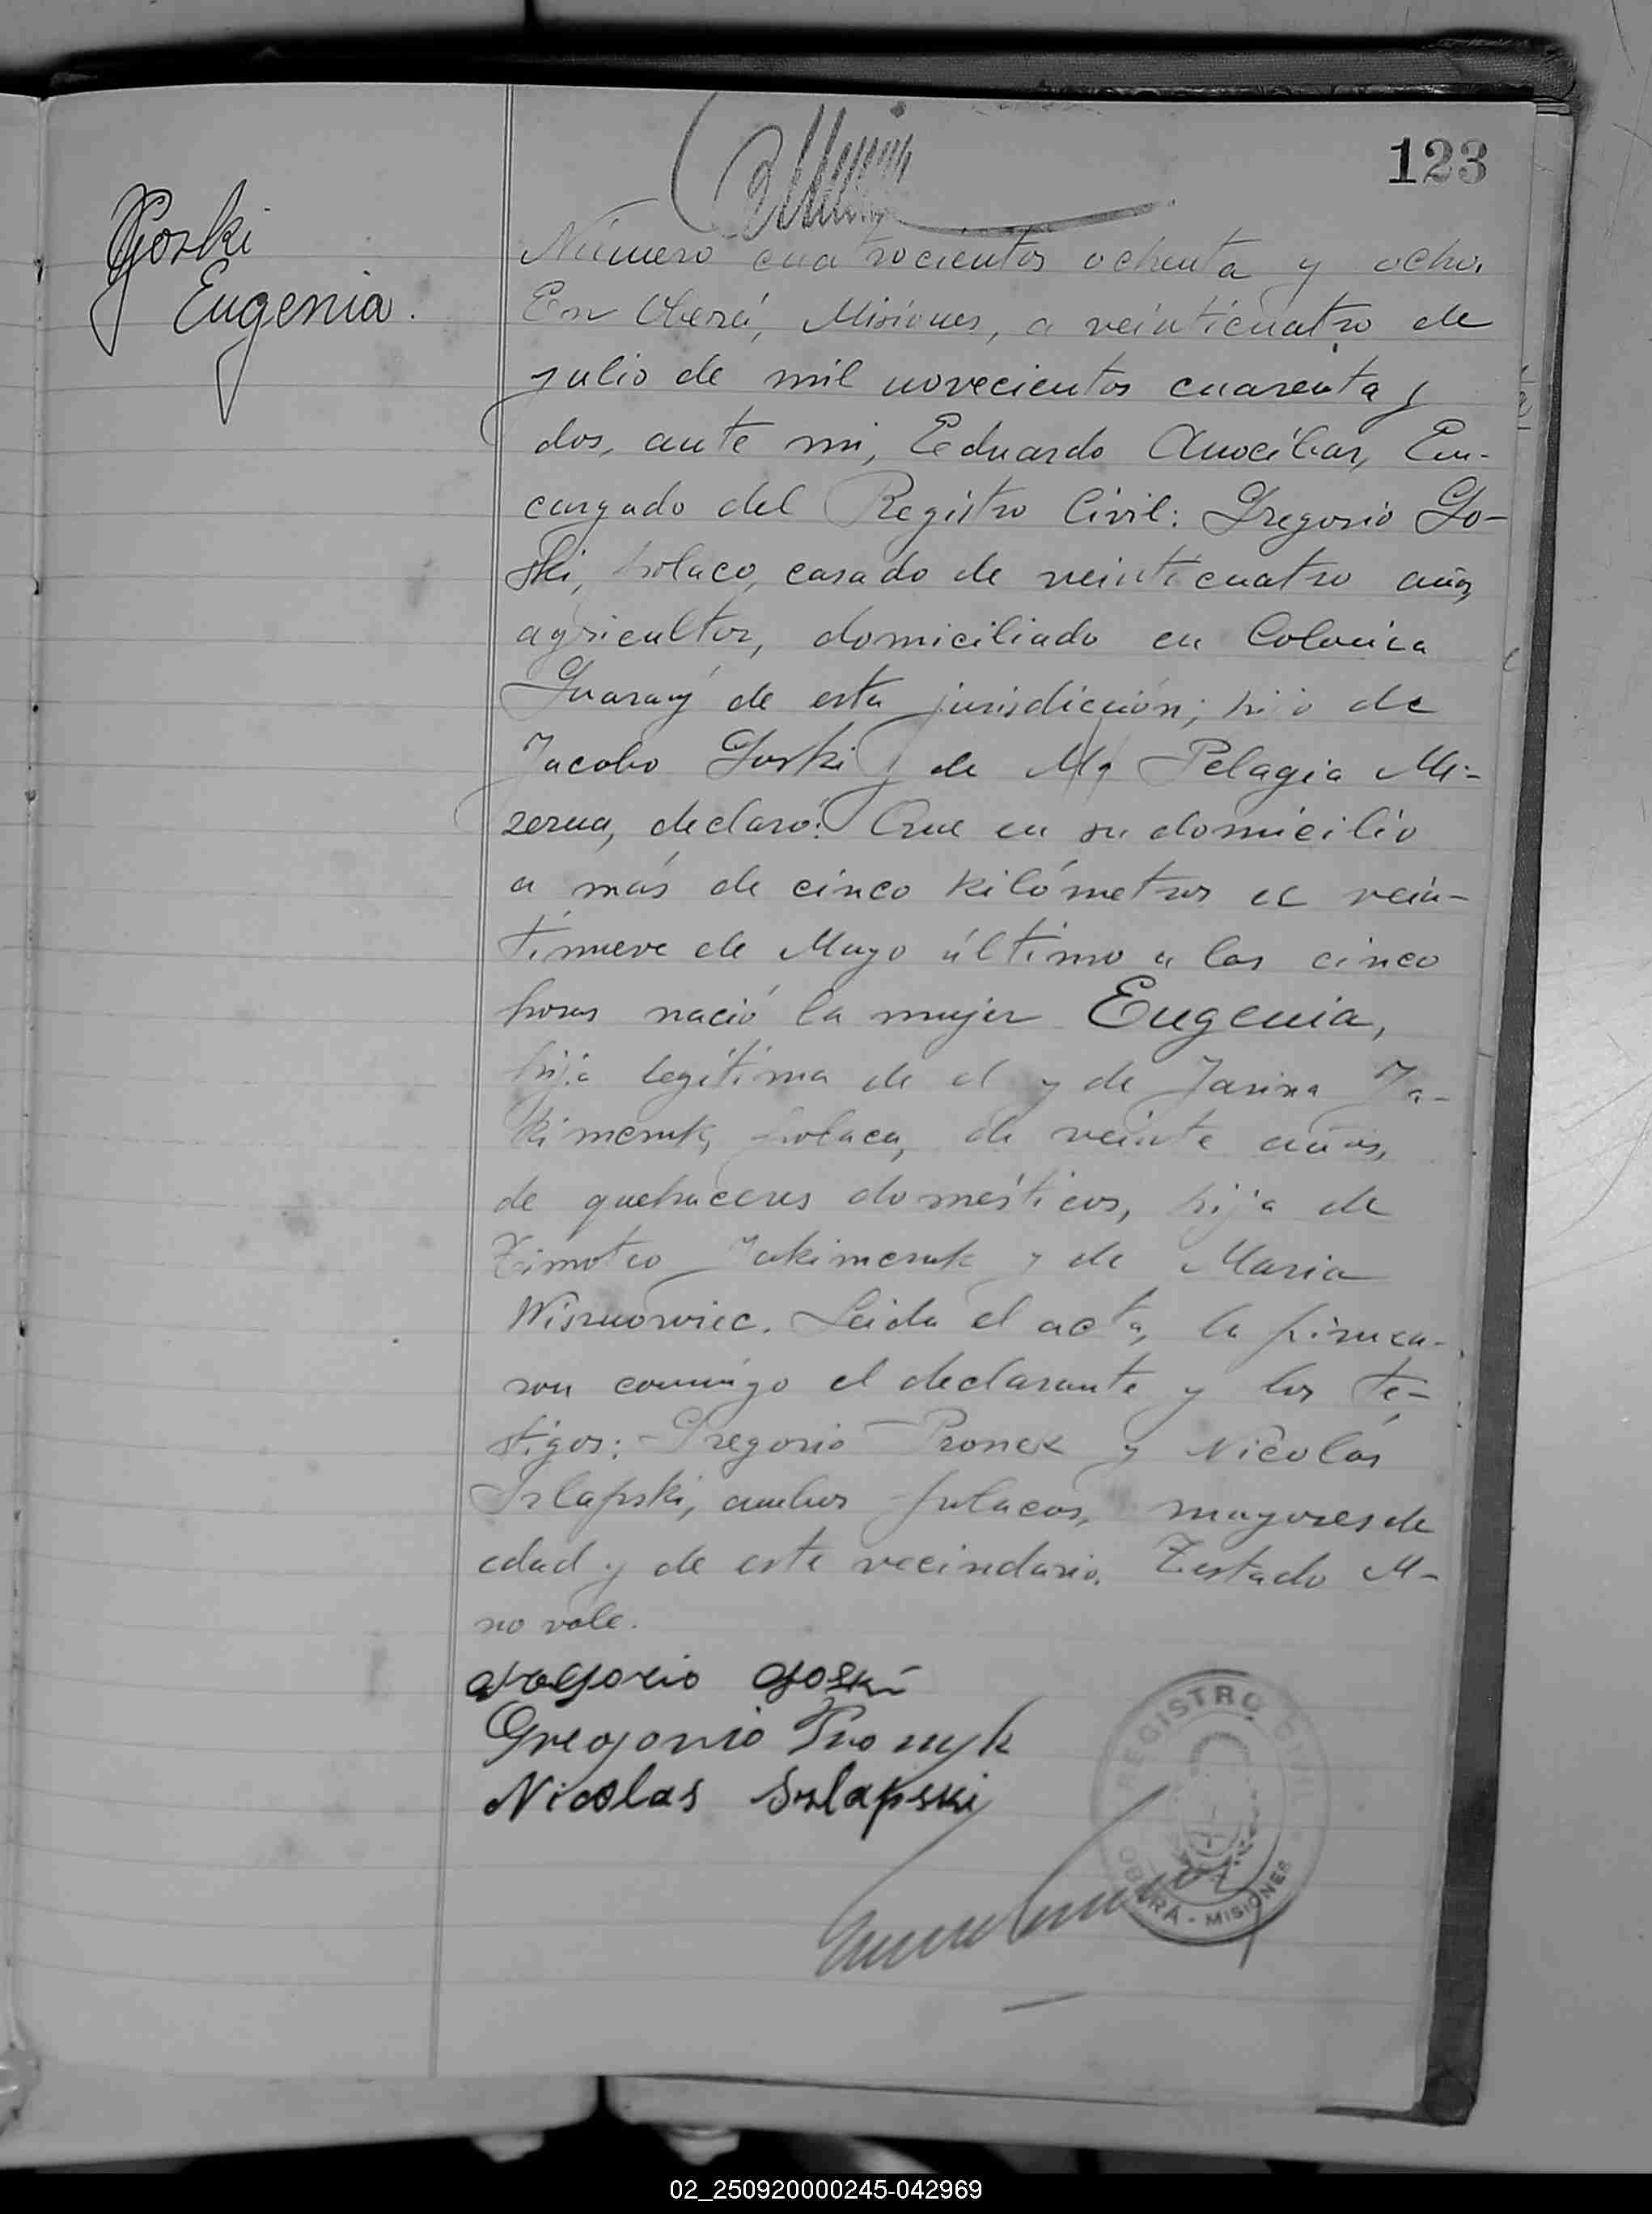 123
Goski
Eugenia.
Número cuatrocientos ochenta y ocho.
En Oberá, Misiones, a veinticuatro de
julio de mil novecientos cuarenta y
dos, ante mi, Eduardo Amocibar, En-
cargado del Registro Civil: Gregorio Go-
ski, polaco, casado de veinticuatro años,
agricultor, domiciliado en Colonia
Guaray de esta jurisdicción; hijo de
Jacobo Goski y de Pelagia Mi-
zerna, declaró: Que en su domicilio
a más de cinco kilómetros el vein-
tinueve de Mayo último a las cinco
horas nació la mujer Eugenia,
hija legítima de el y de Jarina Ja-
kimcruk, polaca, de veinte años,
de quehaceres domésticos, hija de
Timoteo Jakimcruk y de Maria
Wisznowiec. Leida el acta, la firma-
ron conmigo el declarante y los te-
stigos: Gregorio Pronek y Nicolás
Szlapski, ambos polacos, mayores de
edad y de este vecindario. Testado M-
no vale.
Gregorio Goski
Gregorio Pronyk
Nicolas Szlapski
REGISTRO CIVIL
OBERÁ - MISIONES
02_250920000245-042969